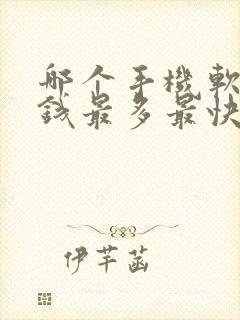 哪个手機軟
錢最多最快
伊芊菡